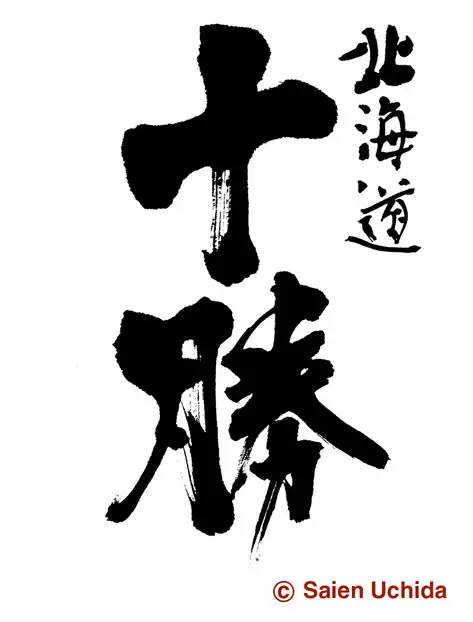 北海道
十勝
© Saien Uchida